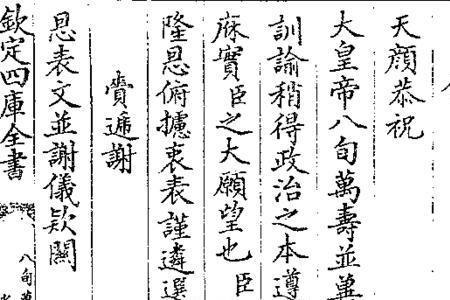 天顔恭祝
大皇帝八旬萬壽並
訓諭稍得政治之本遵
庥實臣之大願望也臣
隆恩俯攄衷表謹遴選
賫遞謝
恩表文並謝儀欵闗
欽定四庫全書
八旬萬